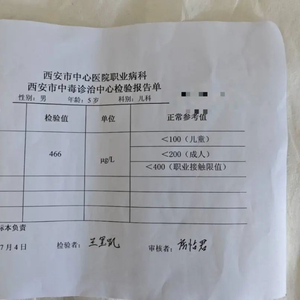 西安市中心医院职业病科
西安市中毒诊治中心检验报告单
性别：男 年龄：5岁 科别：儿科
检验值 单位 正常参考值
466 μg/L <100（儿童）
<200（成人）
<400（职业接触限值）
标本负责
7月4 检验者： 审核者：